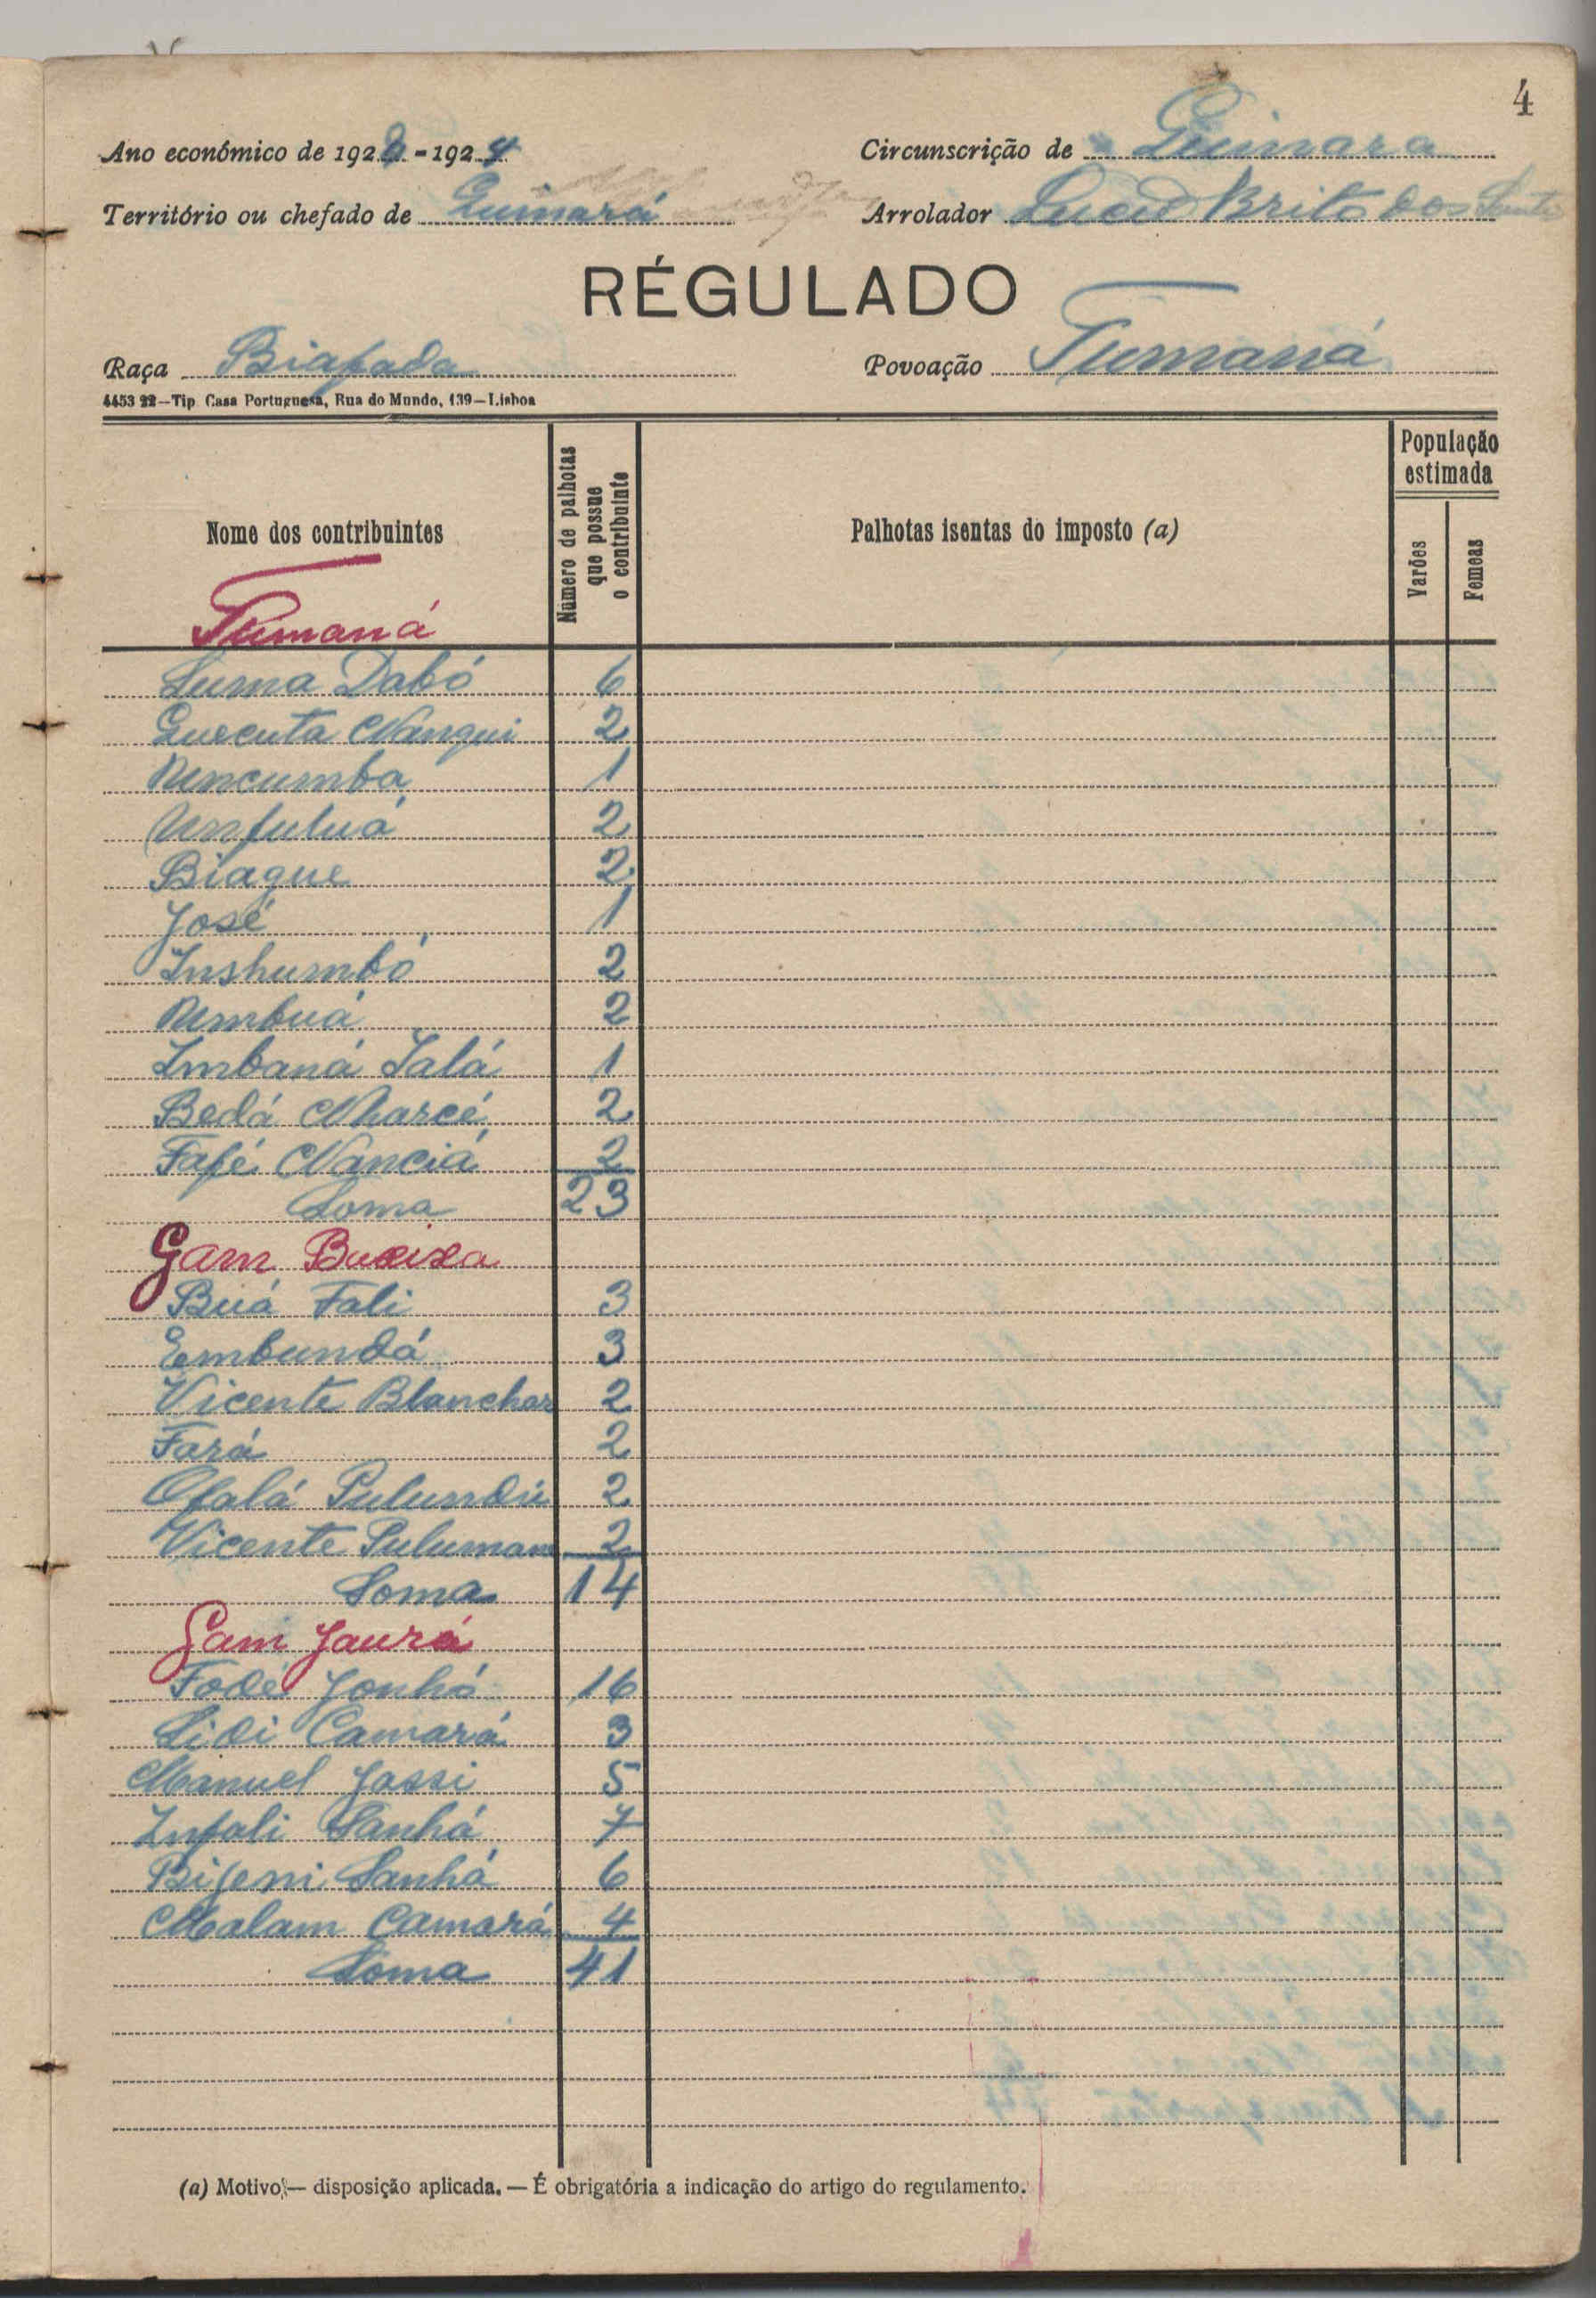 4
Ano económico de 192 - 1924
Circunscrição de Guinara
Território ou chefado de Guinará
Arrolador Lucio Brito dos Santos
RÉGULADO
Raça Biafada
Povoação Tumaná
4453 22—Tip. Casa Portuguesa, Rua do Mundo, 139—Lisboa
Nome dos contribuintes
Número de palhotas que possue o contribuinte
Palhotas isentas do imposto (a)
População estimada
Varões
Femeas
Tumaná
Suma Dabó 6
Quecuta Nanqui 2
Uncumba 1
Unfuluá 2
Biague 2
José 1
Inshumbó 2
Umbuá 2
Imbaná Ialá 1
Bedá Nharcé 2
Fafé Nanciá 2
Soma 23
Gam
Buá Fali 3
Embundá 3
Vicente Blanchar 2
Fará 2
Ofalá Pulundú 2
Vicente 2
Soma 14
Gam Jaurá
Fodé Jonhó 16
Sidi Camará 3
Manuel Jassi 5
Infali Sanhá 7
Bijeni Sanhá 6
Malam Camará 4
Soma 41
(a) Motivo — disposição aplicada. — É obrigatória a indicação do artigo do regulamento.